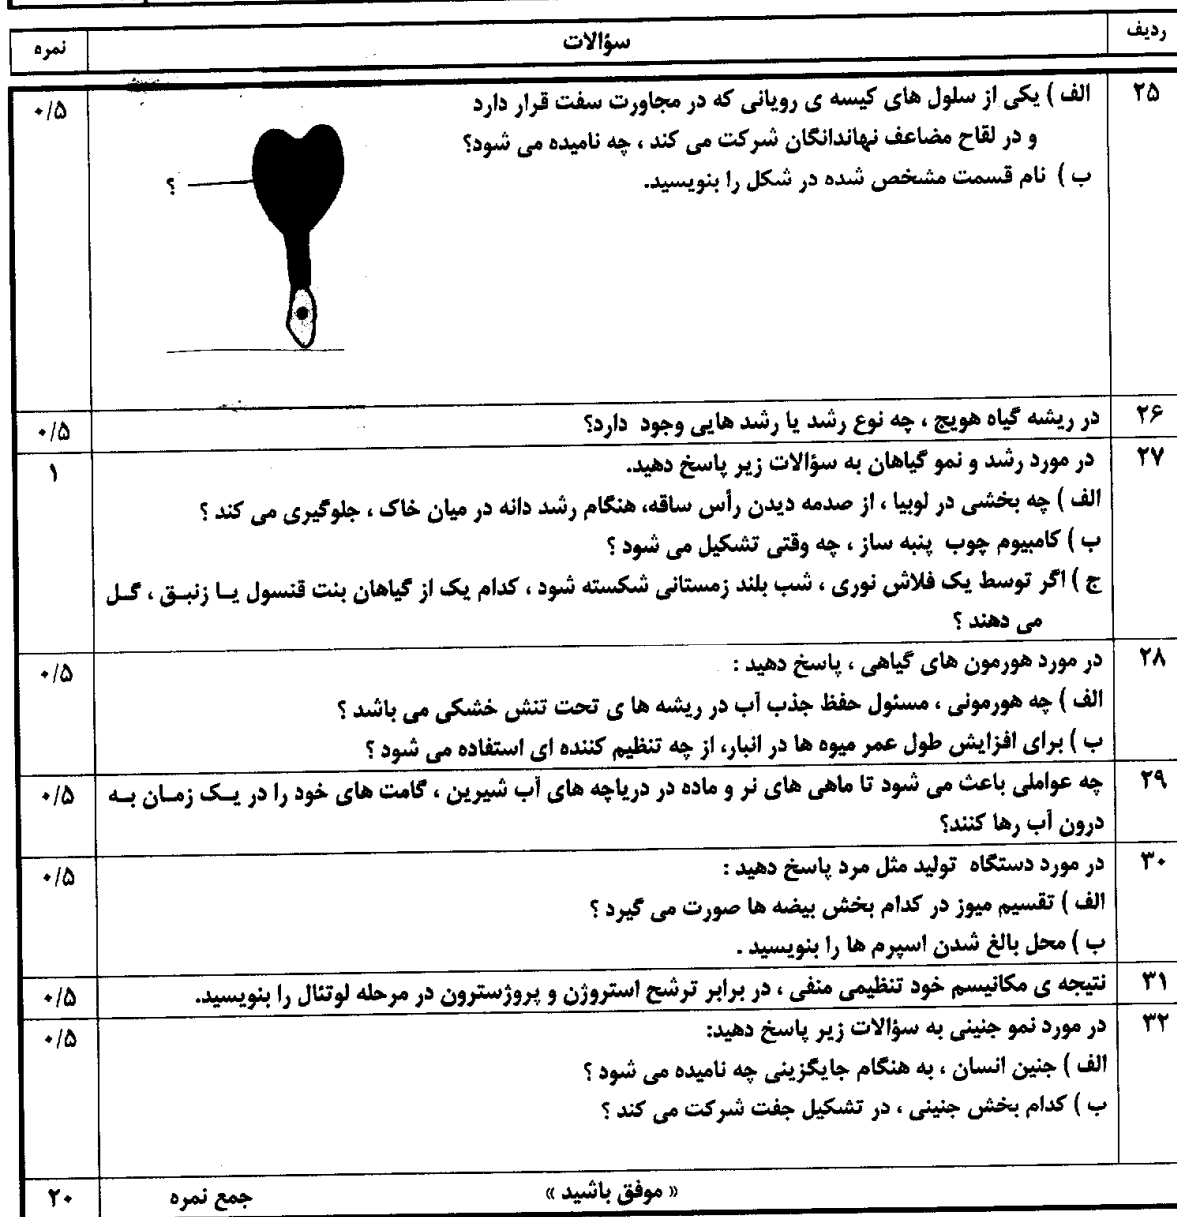 ردیف سؤالات نمره
۲۵ الف ) یکی از سلول های کیسه ی رویانی که در مجاورت سفت قرار دارد ۰/۵
و در لقاح مضاعف نهاندانگان شرکت می کند ، چه نامیده می شود؟
ب ) نام قسمت مشخص شده در شکل را بنویسید.
؟
۲۶ در ریشه گیاه هویج ، چه نوع رشد یا رشد هایی وجود دارد؟ ۰/۵
۲۷ در مورد رشد و نمو گیاهان به سؤالات زیر پاسخ دهید. ۱
الف ) چه بخشی در لوبیا ، از صدمه دیدن رأس ساقه، هنگام رشد دانه در میان خاک ، جلوگیری می کند ؟
ب ) کامبیوم چوب پنبه ساز ، چه وقتی تشکیل می شود ؟
ج ) اگر توسط یک فلاش نوری ، شب بلند زمستانی شکسته شود ، کدام یک از گیاهان بنت قنسول یا زنبق ، گل
می دهند ؟
۲۸ در مورد هورمون های گیاهی ، پاسخ دهید : ۰/۵
الف ) چه هورمونی ، مسئول حفظ جذب آب در ریشه ها ی تحت تنش خشکی می باشد ؟
ب ) برای افزایش طول عمر میوه ها در انبار، از چه تنظیم کننده ای استفاده می شود ؟
۲۹ چه عواملی باعث می شود تا ماهی های نر و ماده در دریاچه های آب شیرین ، گامت های خود را در یک زمان به ۰/۵
درون آب رها کنند؟
۳۰ در مورد دستگاه تولید مثل مرد پاسخ دهید : ۰/۵
الف ) تقسیم میوز در کدام بخش بیضه ها صورت می گیرد ؟
ب ) محل بالغ شدن اسپرم ها را بنویسید .
۳۱ نتیجه ی مکانیسم خود تنظیمی منفی ، در برابر ترشح استروژن و پروژسترون در مرحله لوتئال را بنویسید. ۰/۵
۳۲ در مورد نمو جنینی به سؤالات زیر پاسخ دهید: ۰/۵
الف ) جنین انسان ، به هنگام جایگزینی چه نامیده می شود ؟
ب ) کدام بخش جنینی ، در تشکیل جفت شرکت می کند ؟
« موفق باشید » جمع نمره ۲۰